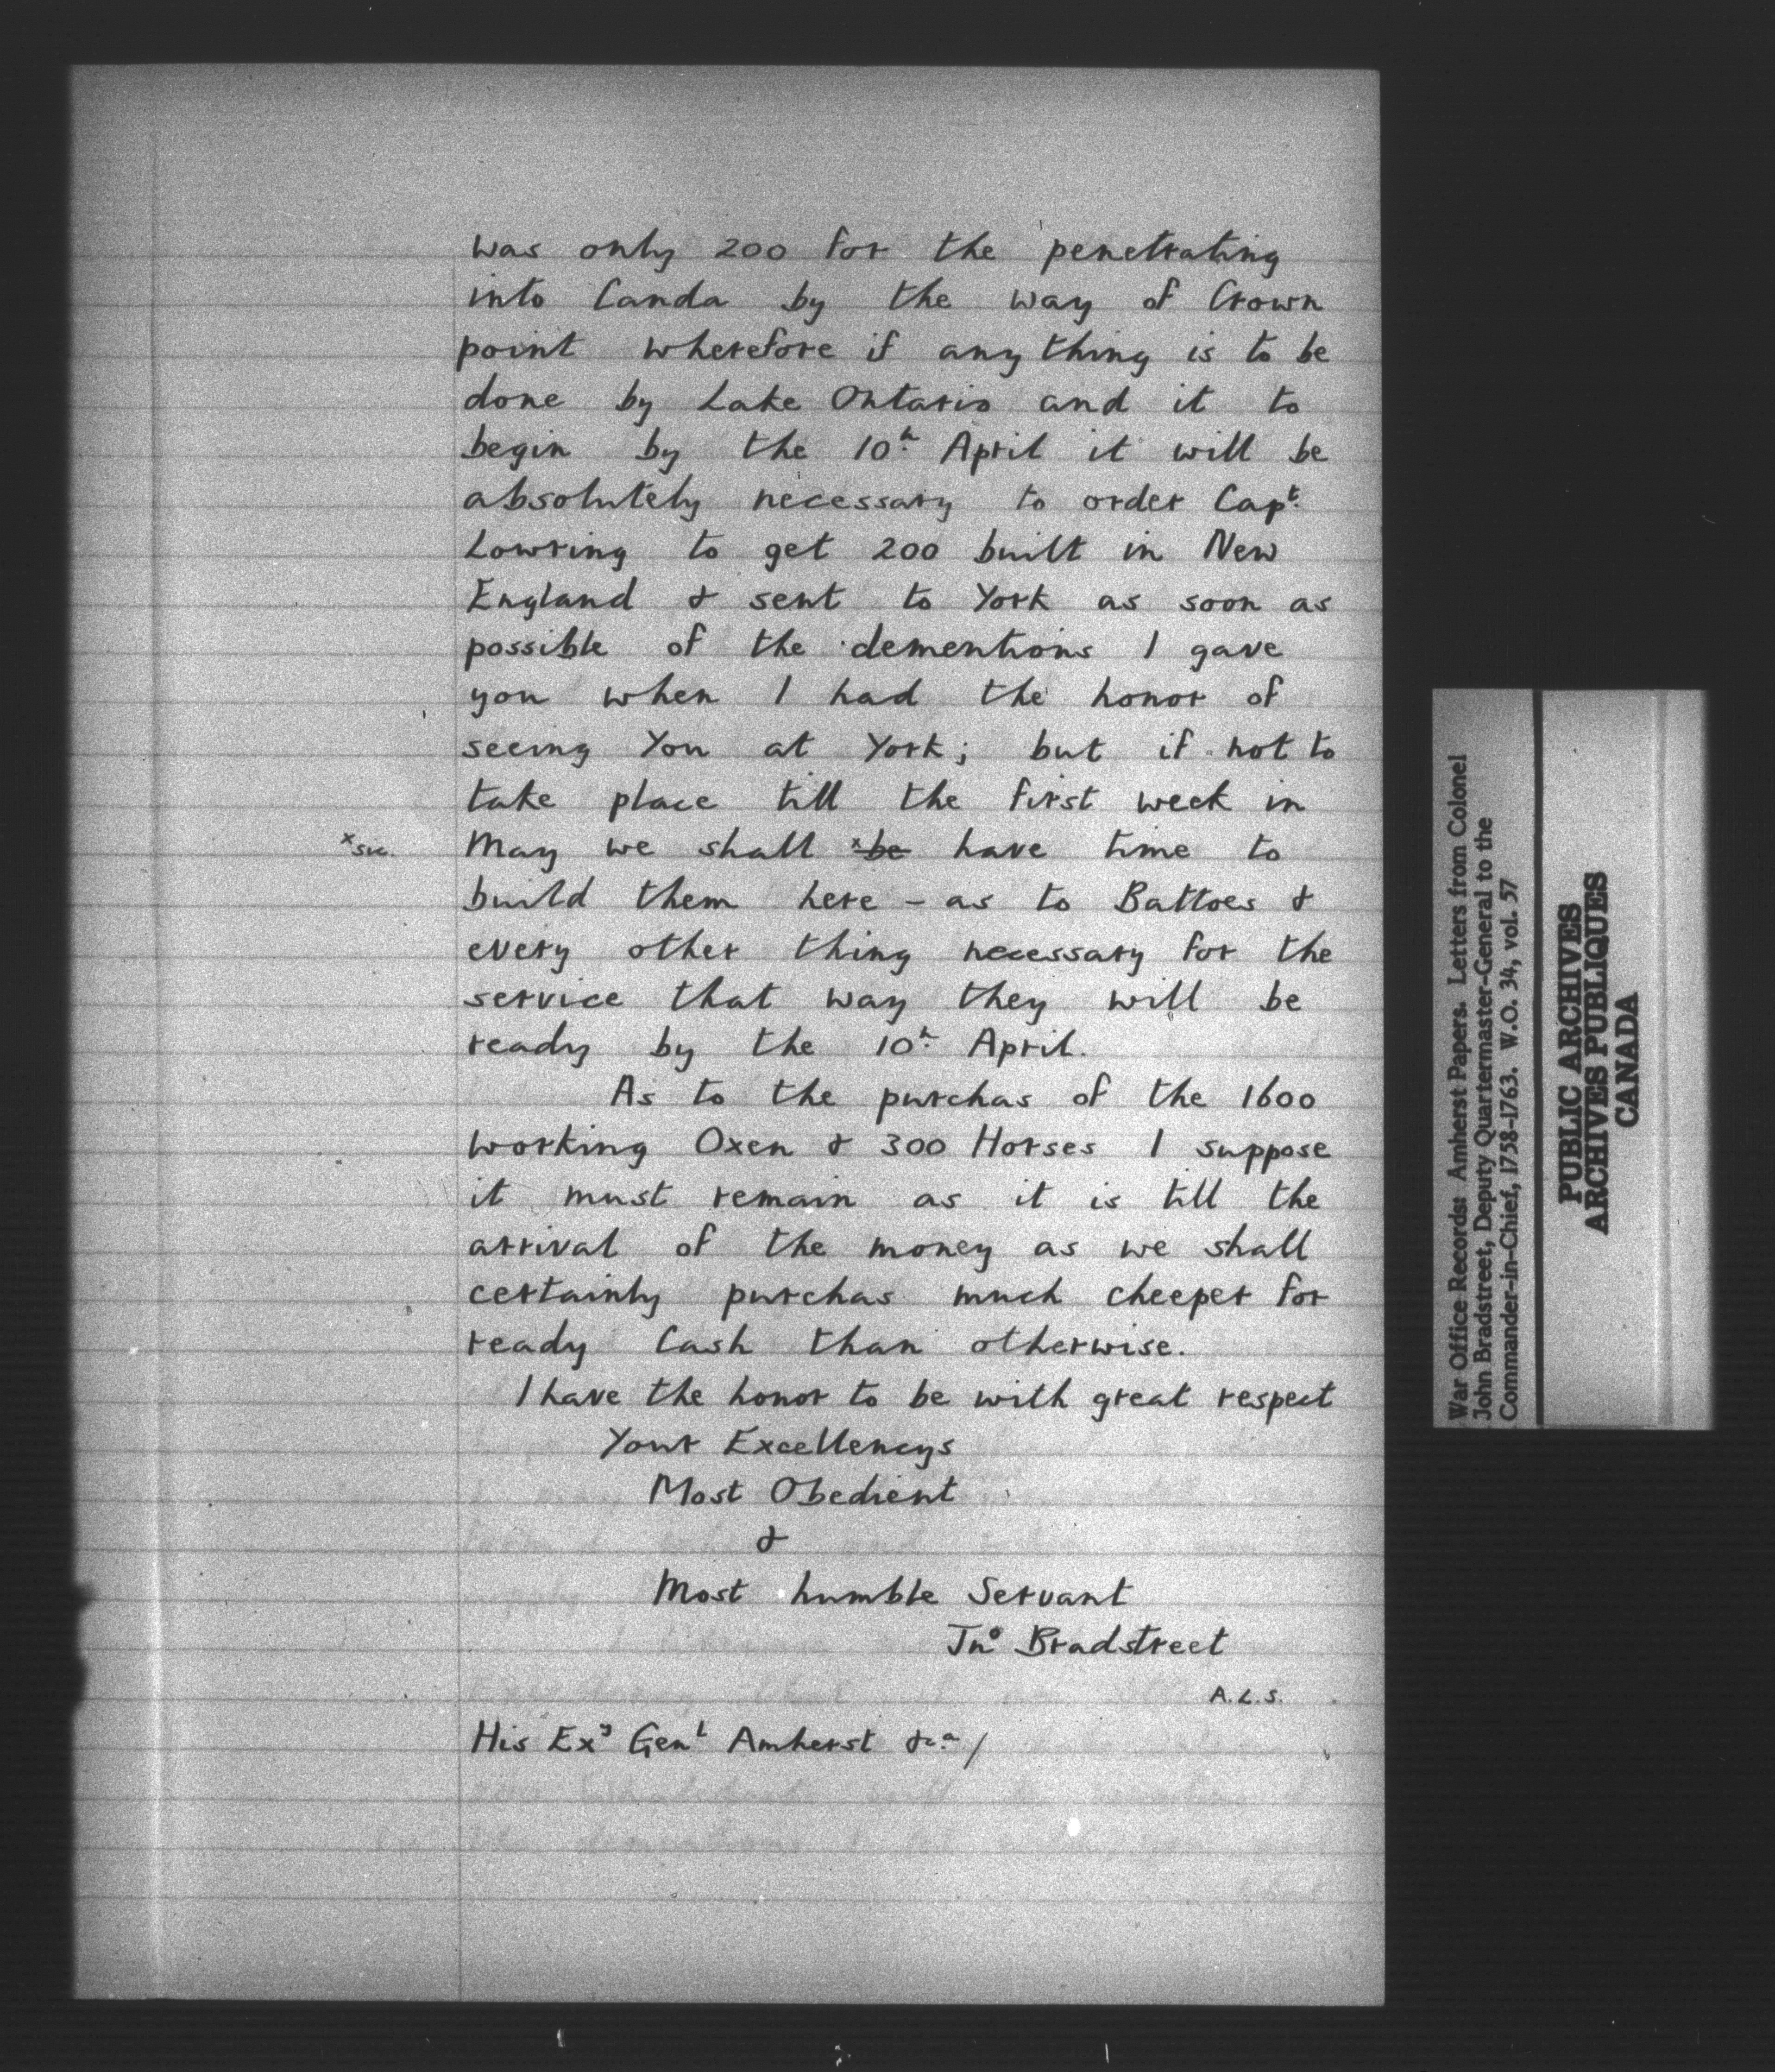 was only 200 for the penetrating
into Canda by the way of Crown
point wherefore if any thing is to be
done by Lake Ontario and it to
begin by the 10h April it will be
absolutely necessary to order Capt
Lowring to get 200 built in New
England & sent to York as soon as
possible of the dementions I gave
you when I had the honor of
seeing You at York; but if not to
take place till the first week in
xsic. May we shall xbe have time to
build them here - as to Battoes &
every other thing necessary for the
service that way they will be
ready by the 10h April.
As to the purchas of the 1600
working Oxen & 300 Horses I suppose
it must remain as it is till the
arrival of the money as we shall
certainly purchas much cheeper for
ready Cash than otherwise.
I have the honor to be with great respect
Your Excellencys
Most Obedient
&
Most humble Servant
Jno Bradstreet
A.L.S.
His Exy Genl Amherst &ca/
War Office Records: Amherst Papers. Letters from Colonel
John Bradstreet, Deputy Quartermaster-General to the
Commander-in-Chief, 1758-1763. W.O. 34, vol. 57
PUBLIC ARCHIVES
ARCHIVES PUBLIQUES
CANADA